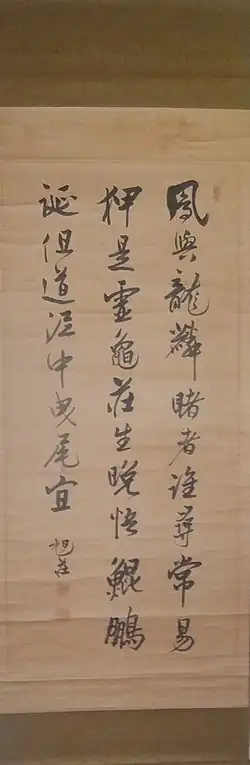 鳳與龍麟睹者誰尋常易
狎是霊龜荘生晩悟鯤鵬
誕但道泥中曳尾宜
旭荘